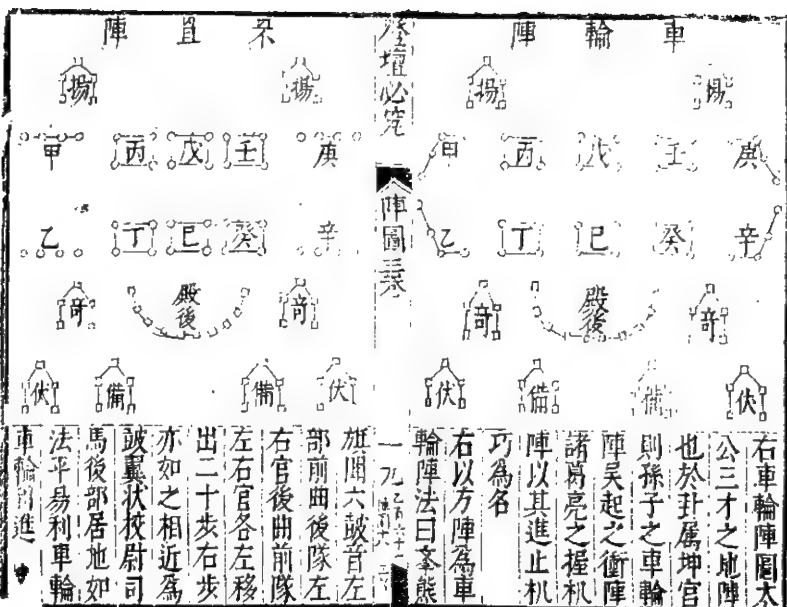 車輪陣
揚 揚
庚 壬 戊 丙 甲
辛 癸 巳 丁 乙
奇 殿後 奇
伏 備 備 伏
右車輪陣圖太
公三才之地陣
也於卦属坤宮
則孫子之車輪
陣吳起之衝陣
諸葛亮之握机
陣以其進止机
巧為名
右以方陣為車
輪陣法曰 熊
登壇必究
陣圖三卷
陣
揚 揚
庚 壬 戊 丙 甲
辛 癸 巳 丁 乙
奇 殿後 奇
伏 備 備 伏
旌開六皷音左
部前曲後隊左
右官後曲前隊
左右官各左移
出二十步右步
亦如之相近為
皷翼状校尉司
馬後部居地如
法平易利車輪
車輪 進